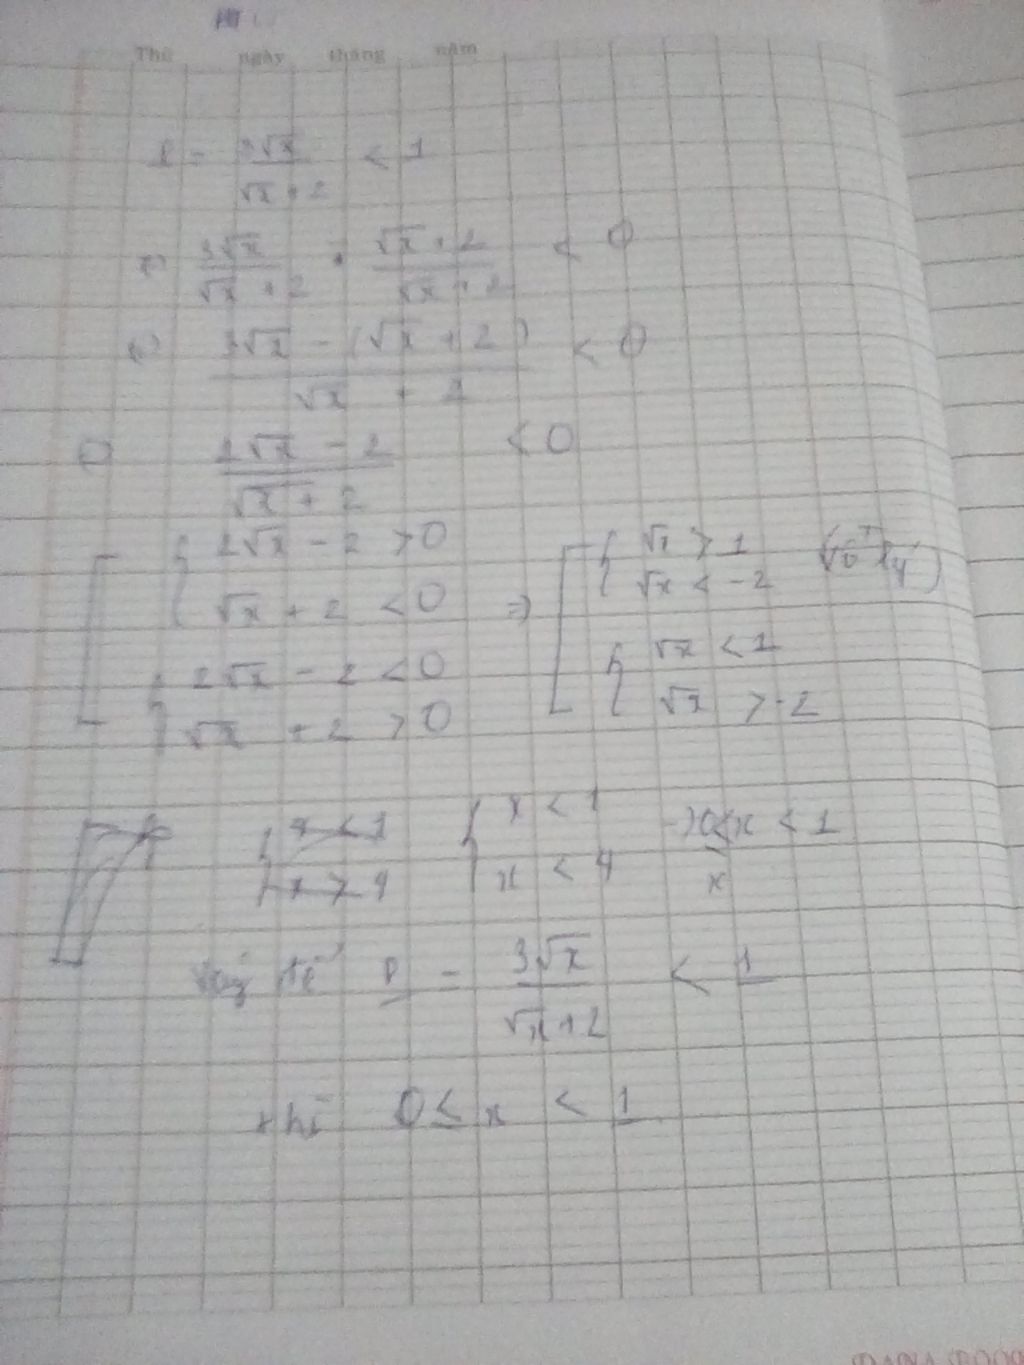 Thứ ngày tháng năm
P = 3√x / (√x + 2) < 1
⇔ 3√x / (√x + 2) - (√x + 2) / (√x + 2) < 0
⇔ (3√x - (√x + 2)) / (√x + 2) < 0
⇔ (2√x - 2) / (√x + 2) < 0
[ { 2√x - 2 > 0 ⇒ [ { √x > 1
√x + 2 < 0 √x < -2
{ 2√x - 2 < 0 { √x < 1
√x + 2 > 0 √x > -2
{ x < 1 → 0 ≤ x < 1
x < 4 x
Vậy để P = 3√x / (√x + 2) < 1
thì 0 ≤ x < 1